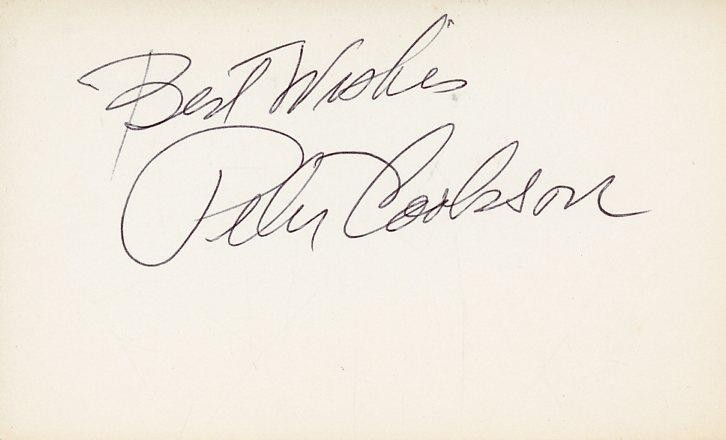 Best Wishes
Peter Cookson